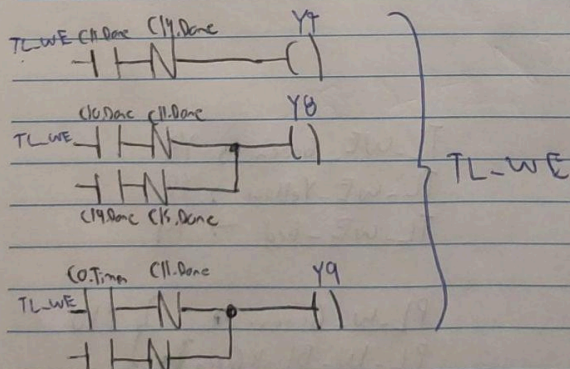 TL_WE C11.Done C14.Done Y7
C10.Done C11.Done Y8
TL_WE
TL_WE
C14.Done C15.Done
C0.Timer C11.Done Y9
TL_WE